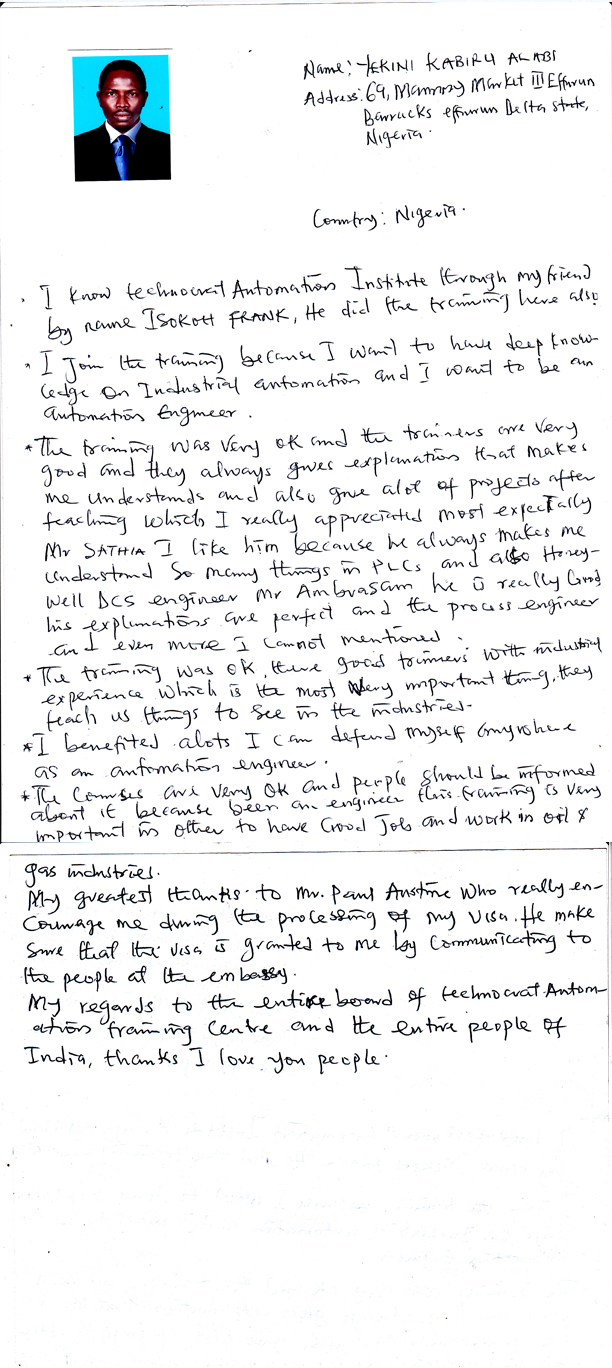 Name: YEKINI KABIRU ALABI
Address: 69, Mammy Market III Effurun
Barracks effurun Delta state,
Nigeria.
Country: Nigeria.
. I know technocrat Automation Institute through my friend
by name ISOKOH FRANK, He did the training here also
* I Join the training because I want to have deep know-
ledge on Industrial automation and I want to be an
automation Engineer.
* The training was very ok and the trainers are very
good and they always gives explanation that makes
me understands and also give alot of projects after
teaching which I really appreciated most expectially
Mr SATHIA I like him because he always makes me
understand so many things in PLCs and also Honey-
well DCS engineer Mr Ambrasam he is really Good
his explanations are perfect and the process engineer
and even more I cannot mentioned.
* The training was ok, there good trainners with industrial
experience which is the most very important thing, they
teach us things to see in the industries.
* I benefited alots I can defend myself anywhere
as an automation engineer.
* The Courses are very ok and people should be informed
about it because been an engineer this training is very
important in other to have Good Job and work in oil &
gas industries.
My greatest thanks to Mr. Paul Austine who really en-
courage me during the processing of my visa. He make
sure that the visa is granted to me by communicating to
the people at the embassy.
My regards to the entire board of technocrat Autom-
ation training Centre and the entire people of
India, thanks I love you people.